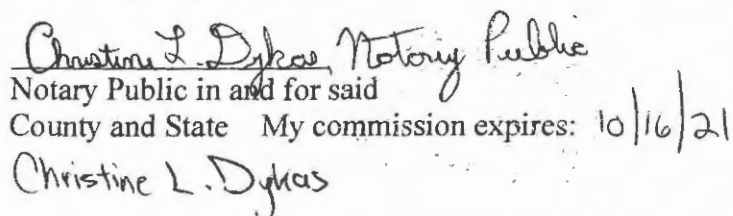 Christine L. Dykas, Notary Public
Notary Public in and for said
County and State My commission expires: 10/16/21
Christine L. Dykas